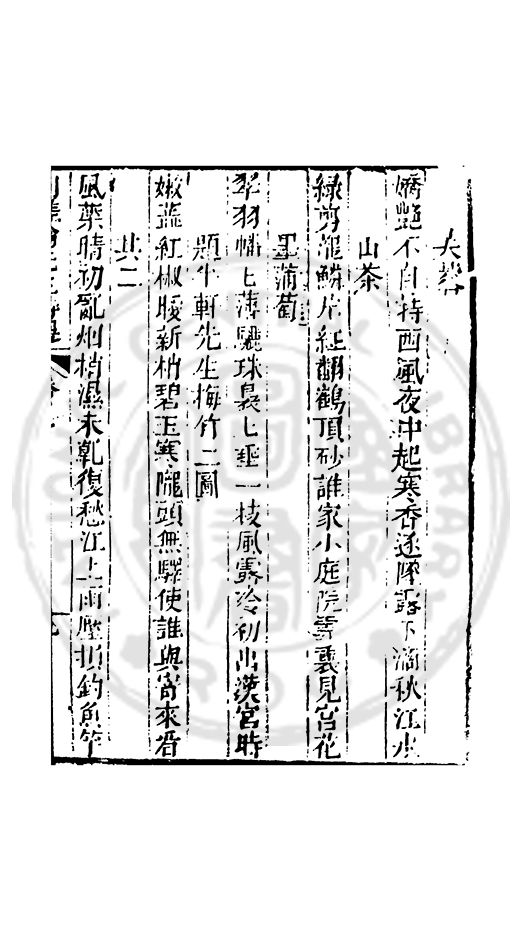 夫蓉
嬌艷不自持西風夜中起寒香逐陣露下滴秋江水
山茶
綠剪龍鱗片紅翻鶴頂砂誰家小庭院雪裏見宮花
墨蒲萄
翠羽幡七薄驪珠裊七垂一枝風露冷初出漢宮時
題牛軒先生梅竹二圖
嫩蕊紅椒暖新梢碧玉寒隴頭無驛使誰與寄來看
其二
風葉晴初亂烟梢濕未乾復愁江上雨壓損釣魚竿